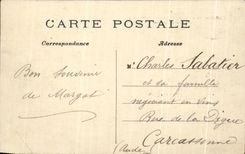 CARTE POSTALE
Correspondance
Adresse
Bon Souvenir
de Margot
Mr Charles Sabatier
et sa famille
négociant en vins
Rue de la Digue
Carcassonne
(Aude)